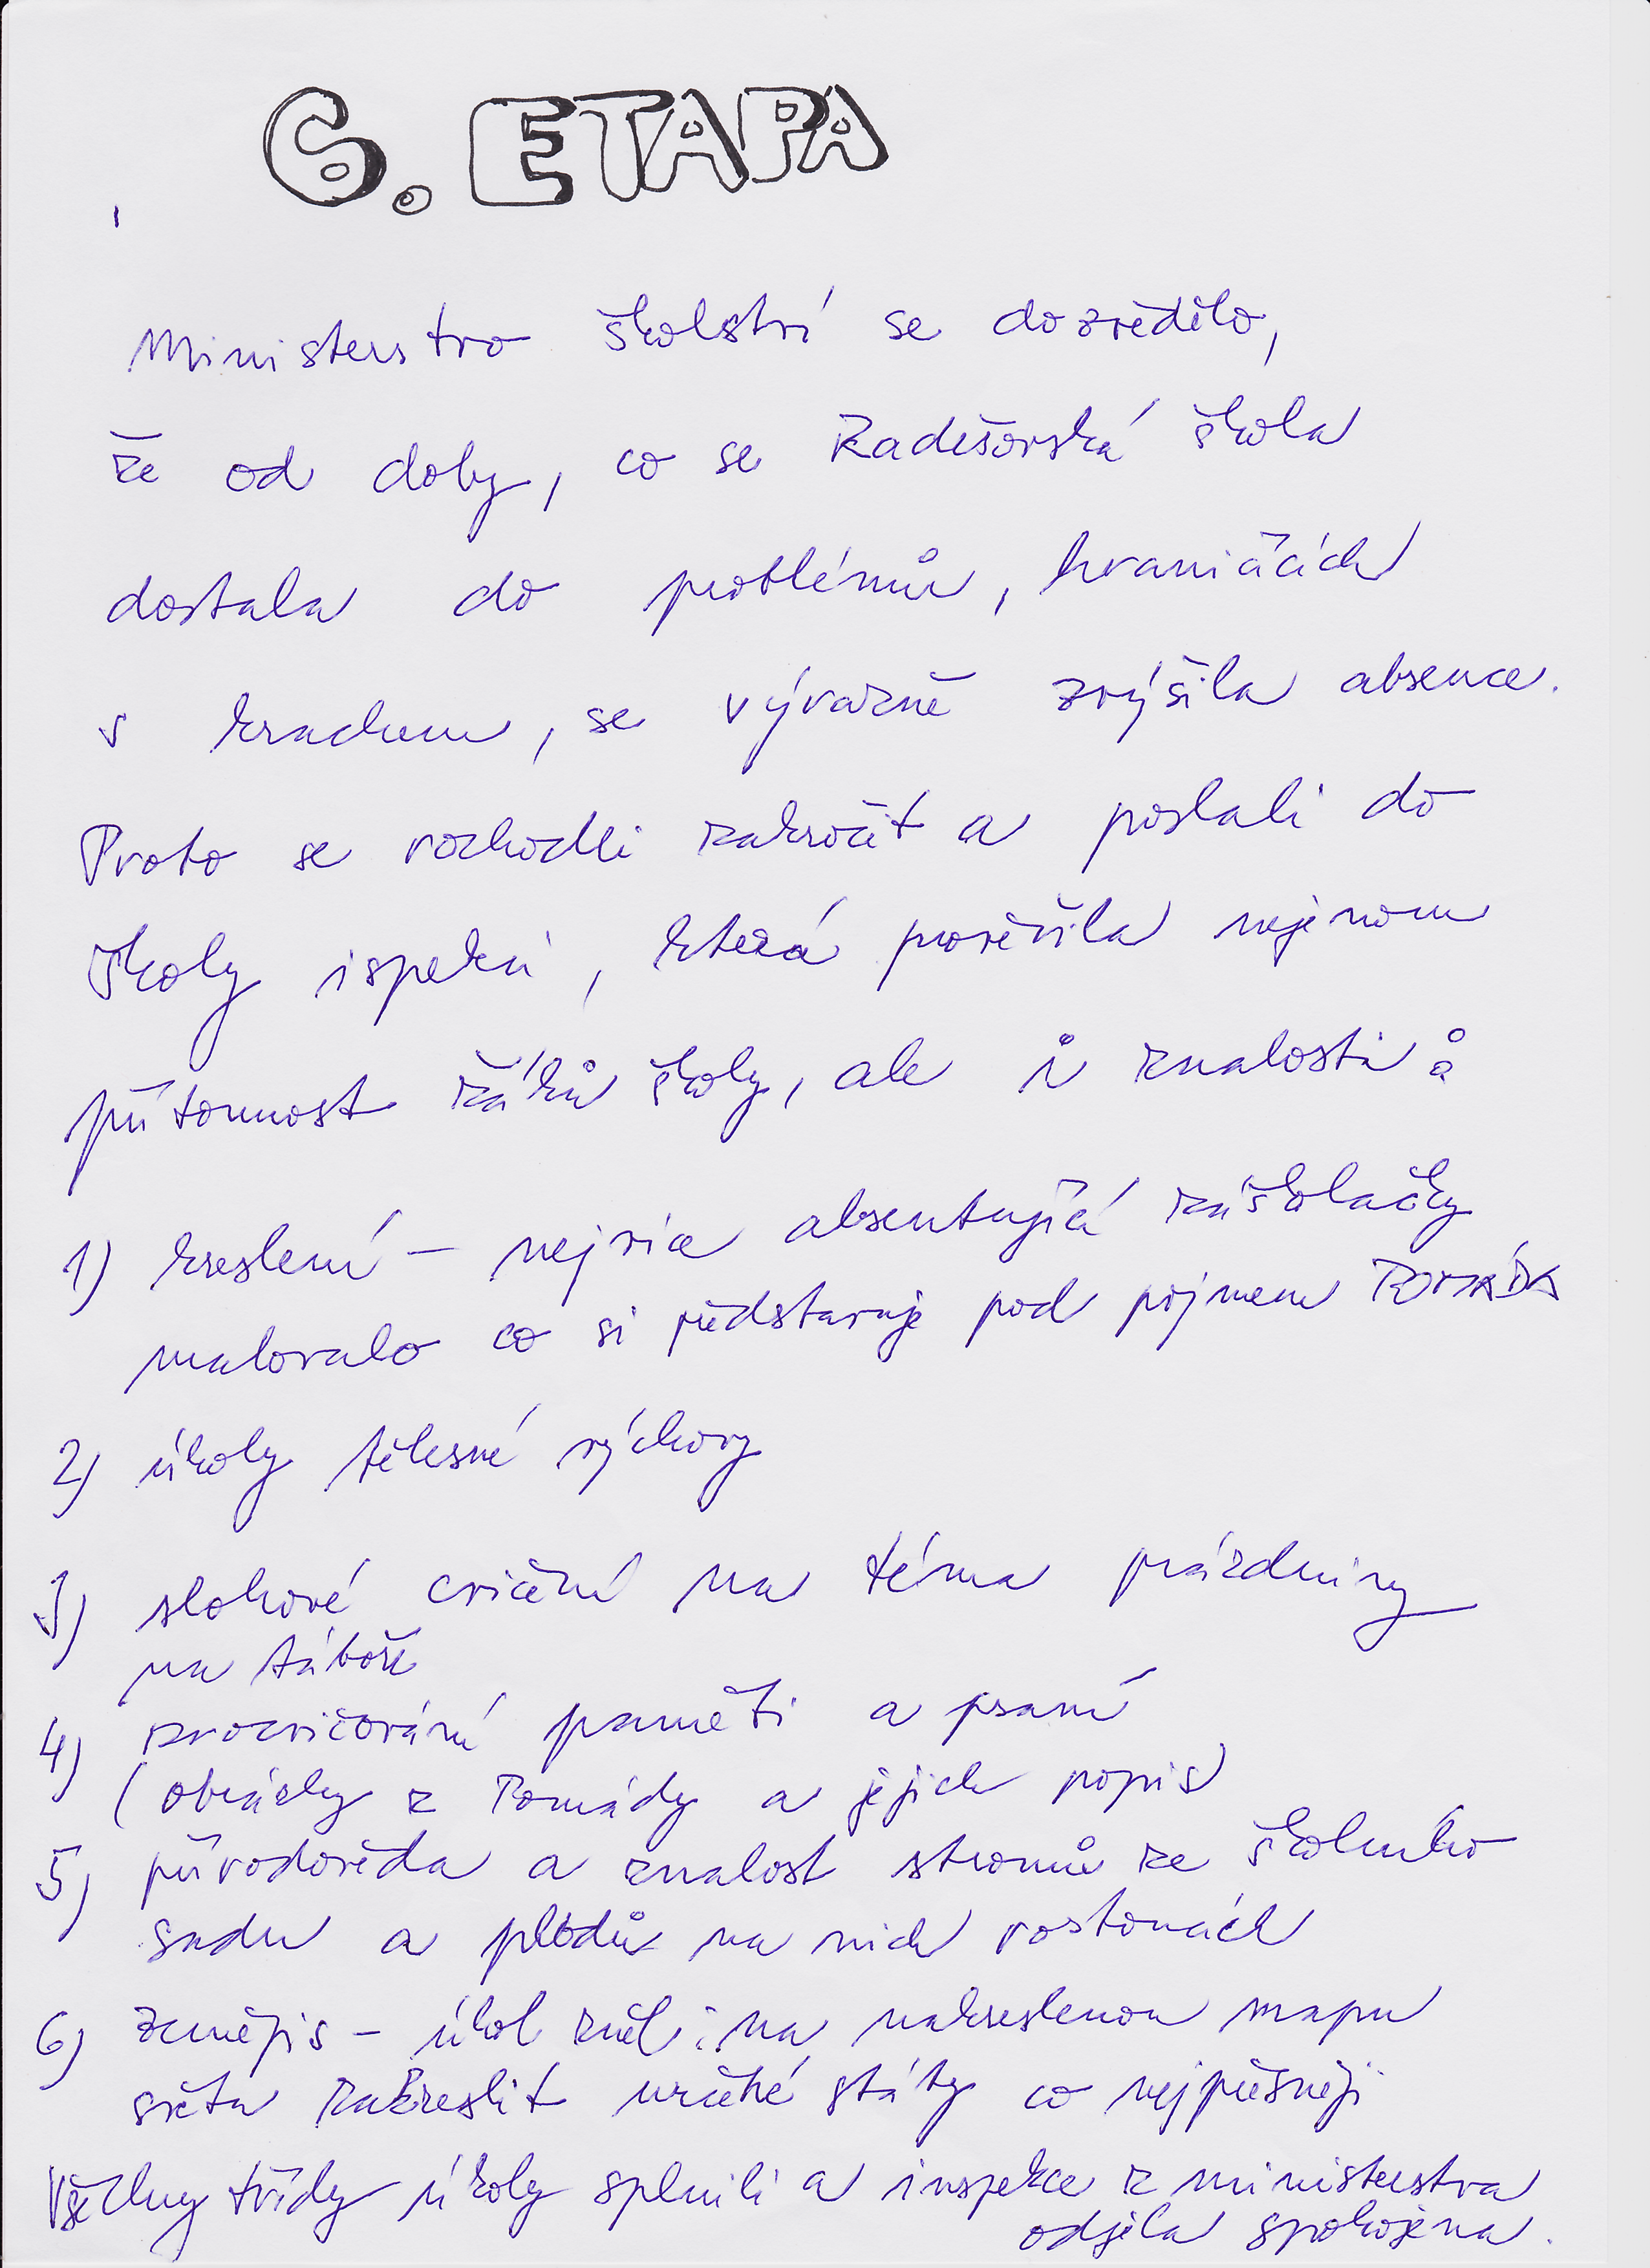 6. ETAPA
Ministerstvo školství se dozvědělo,
že od doby, co se Radešovská škola
dostala do problémů, hraničících
s krachem, se vývazně zvýšila absence.
Proto se rozhodli zakročit a poslali do
školy ispekci, která prověřila nejenom
přítomnost žáků školy, ale i znalosti:
1) kreslení – nejvíce absentující záškoláčky
malovalo co si představuje pod pojmem POMÁDA
2) úkoly tělesné výchovy
3) slohové cvičení na téma prázdniny
na táboře
4) procvičování paměti a psaní
(obrázky z Pomády a jejich popis)
5) přírodověda a znalost stromů ze školního
sadu a plodů na nich rostoucích
6) zeměpis – úkol zněl: na nakreslenou mapu
světa zakreslit určité státy co nejpřesněji
Všechny třídy úkoly splnili a inspekce z ministerstva
odjela spokojena.